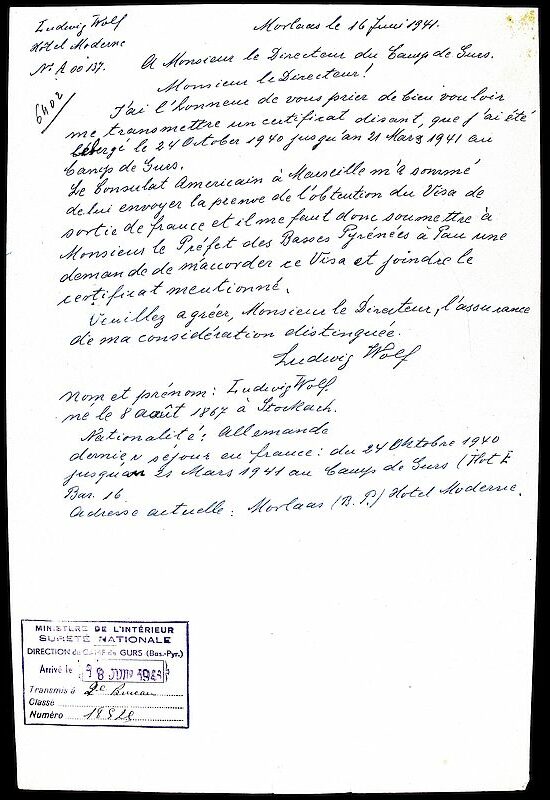 Ludwig Wolf
Hôtel Moderne
No. A 00137.
Morlaas le 16 Juni 1941.
A Monsieur le Directeur du Camp de Gurs.
6402
Monsieur le Directeur!
J'ai l'honneur de vous prier de bien vouloir
me transmettre un certificat disant, que j'ai été
hébergé le 24 October 1940 jusqu'an 21 Mars 1941 au
Camp de Gurs.
Le Consulat Americain à Marseille m'a sommé
de lui envoyer la preuve de l'obtention du Visa de
sortie de france et il me faut donc soumettre à
Monsieur le Préfet des Basses Pyrénées à Pau une
demande de m'accorder ce Visa et joindre le
certificat mentionné.
Veuillez agréer, Monsieur le Directeur, l'assurance
de ma considération distinguée.
Ludwig Wolf
Nom et prénom: Ludwig Wolf
né le 8 août 1867 à Stockach.
Nationalité: Allemande
dernier séjour en france: du 24 Oktobre 1940
jusqu'an 21 Mars 1941 au Camp de Gurs (Ilot E
Bar. 16
Adresse actuelle: Morlaas (B. P.) Hotel Moderne.
MINISTÈRE DE L'INTÉRIEUR
SURETÉ NATIONALE
DIRECTION du CAMP de GURS (Bas.-Pyr.)
Arrivé le 18 JUIN 1941
Transmis à 2e Bureau
Classe
Numéro